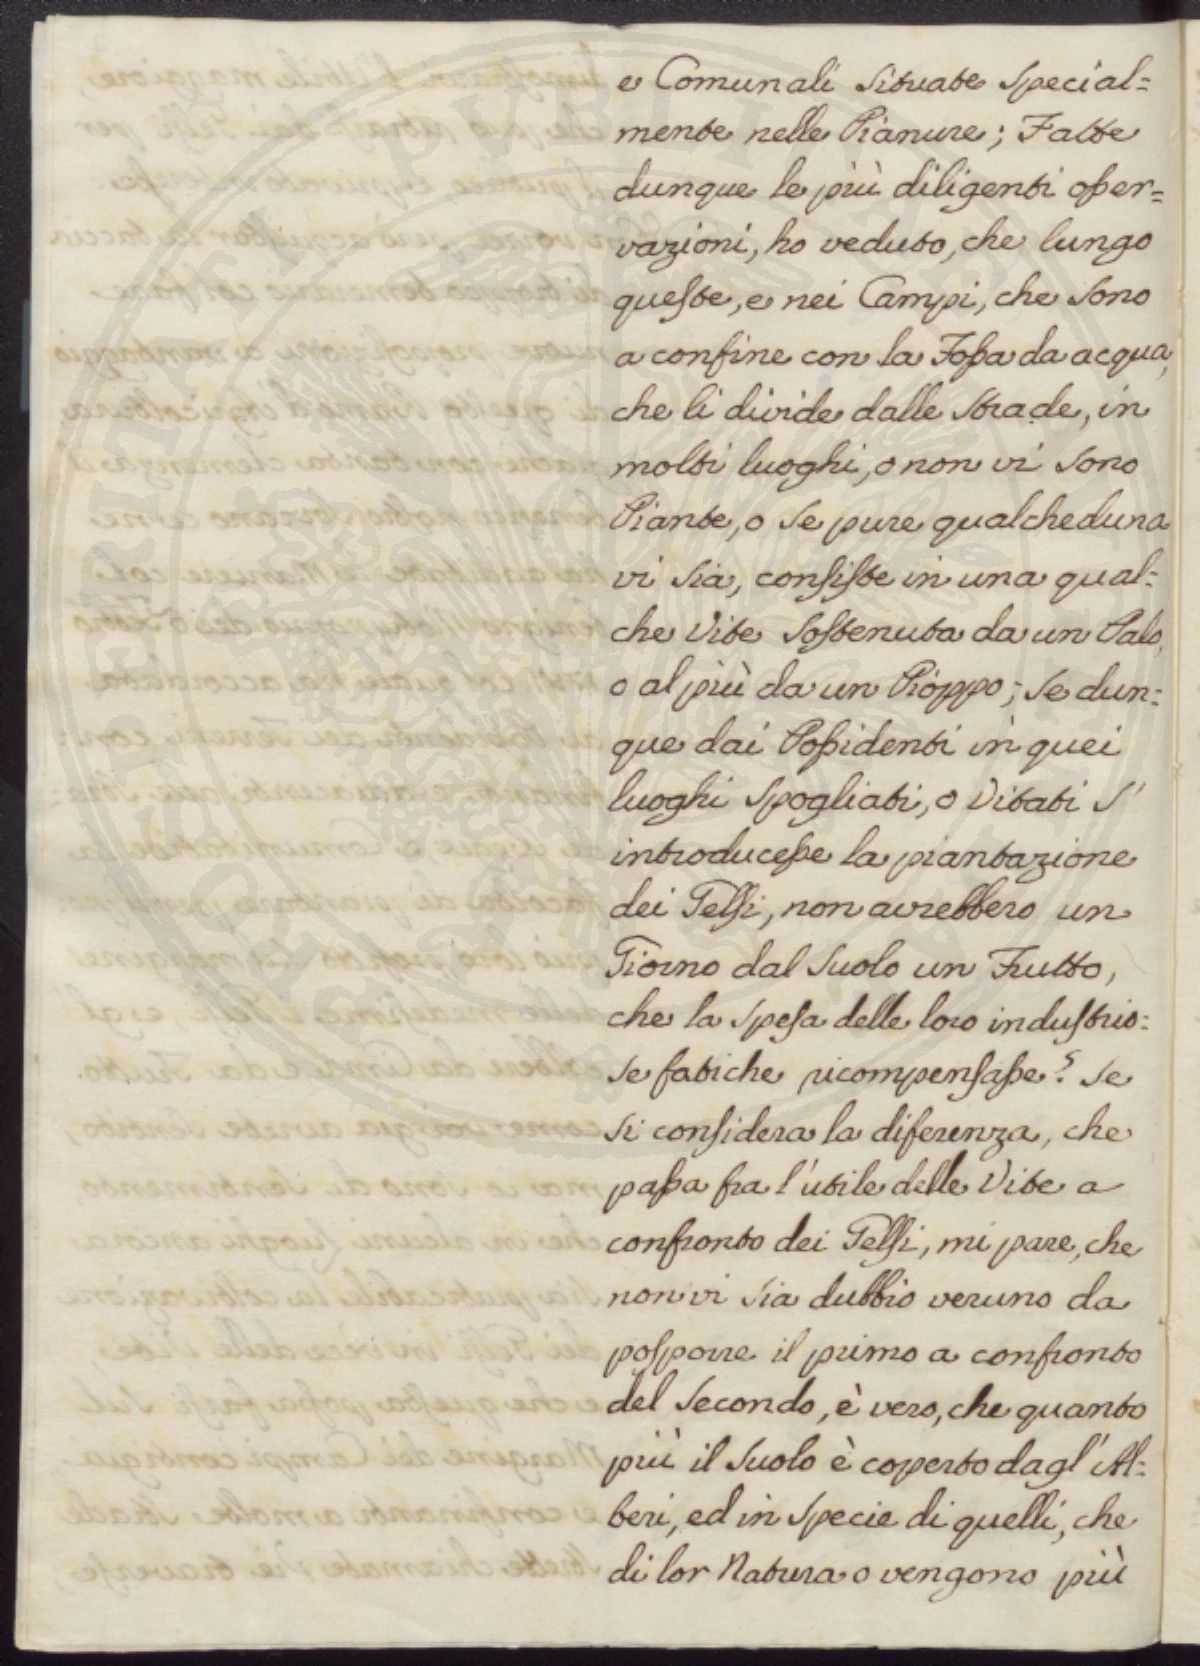 e Comunali situate special=
mente nelle Pianure; Fatte
dunque le più diligenti osser=
vazioni, ho veduto, che lungo
queste, e nei Campi, che sono
a confine con la Fossa da acqua,
che li divide dalle strade, in
molti luoghi, o non vi sono
Piante, o se pure qualcheduna
vi sia, consiste in una qual=
che Vite sostenuta da un Palo,
o al più da un Pioppo; se dun=
que dai Possidenti in quei
luoghi spogliati, o Vitati s'
introducesse la piantazione
dei Gelsi, non avrebbero un
Giorno dal suolo un Frutto,
che la spesa delle loro industrio=
se fatiche ricompensasse? se
si considera la diferenza, che
passa fra l'utile delle Vite a
confronto dei Gelsi, mi pare, che
non vi sia dubbio veruno da
posporre il primo a confronto
del secondo, è vero, che quanto
più il suolo è coperto dagl'Al=
beri, ed in specie di quelli, che
di lor Natura o vengono più